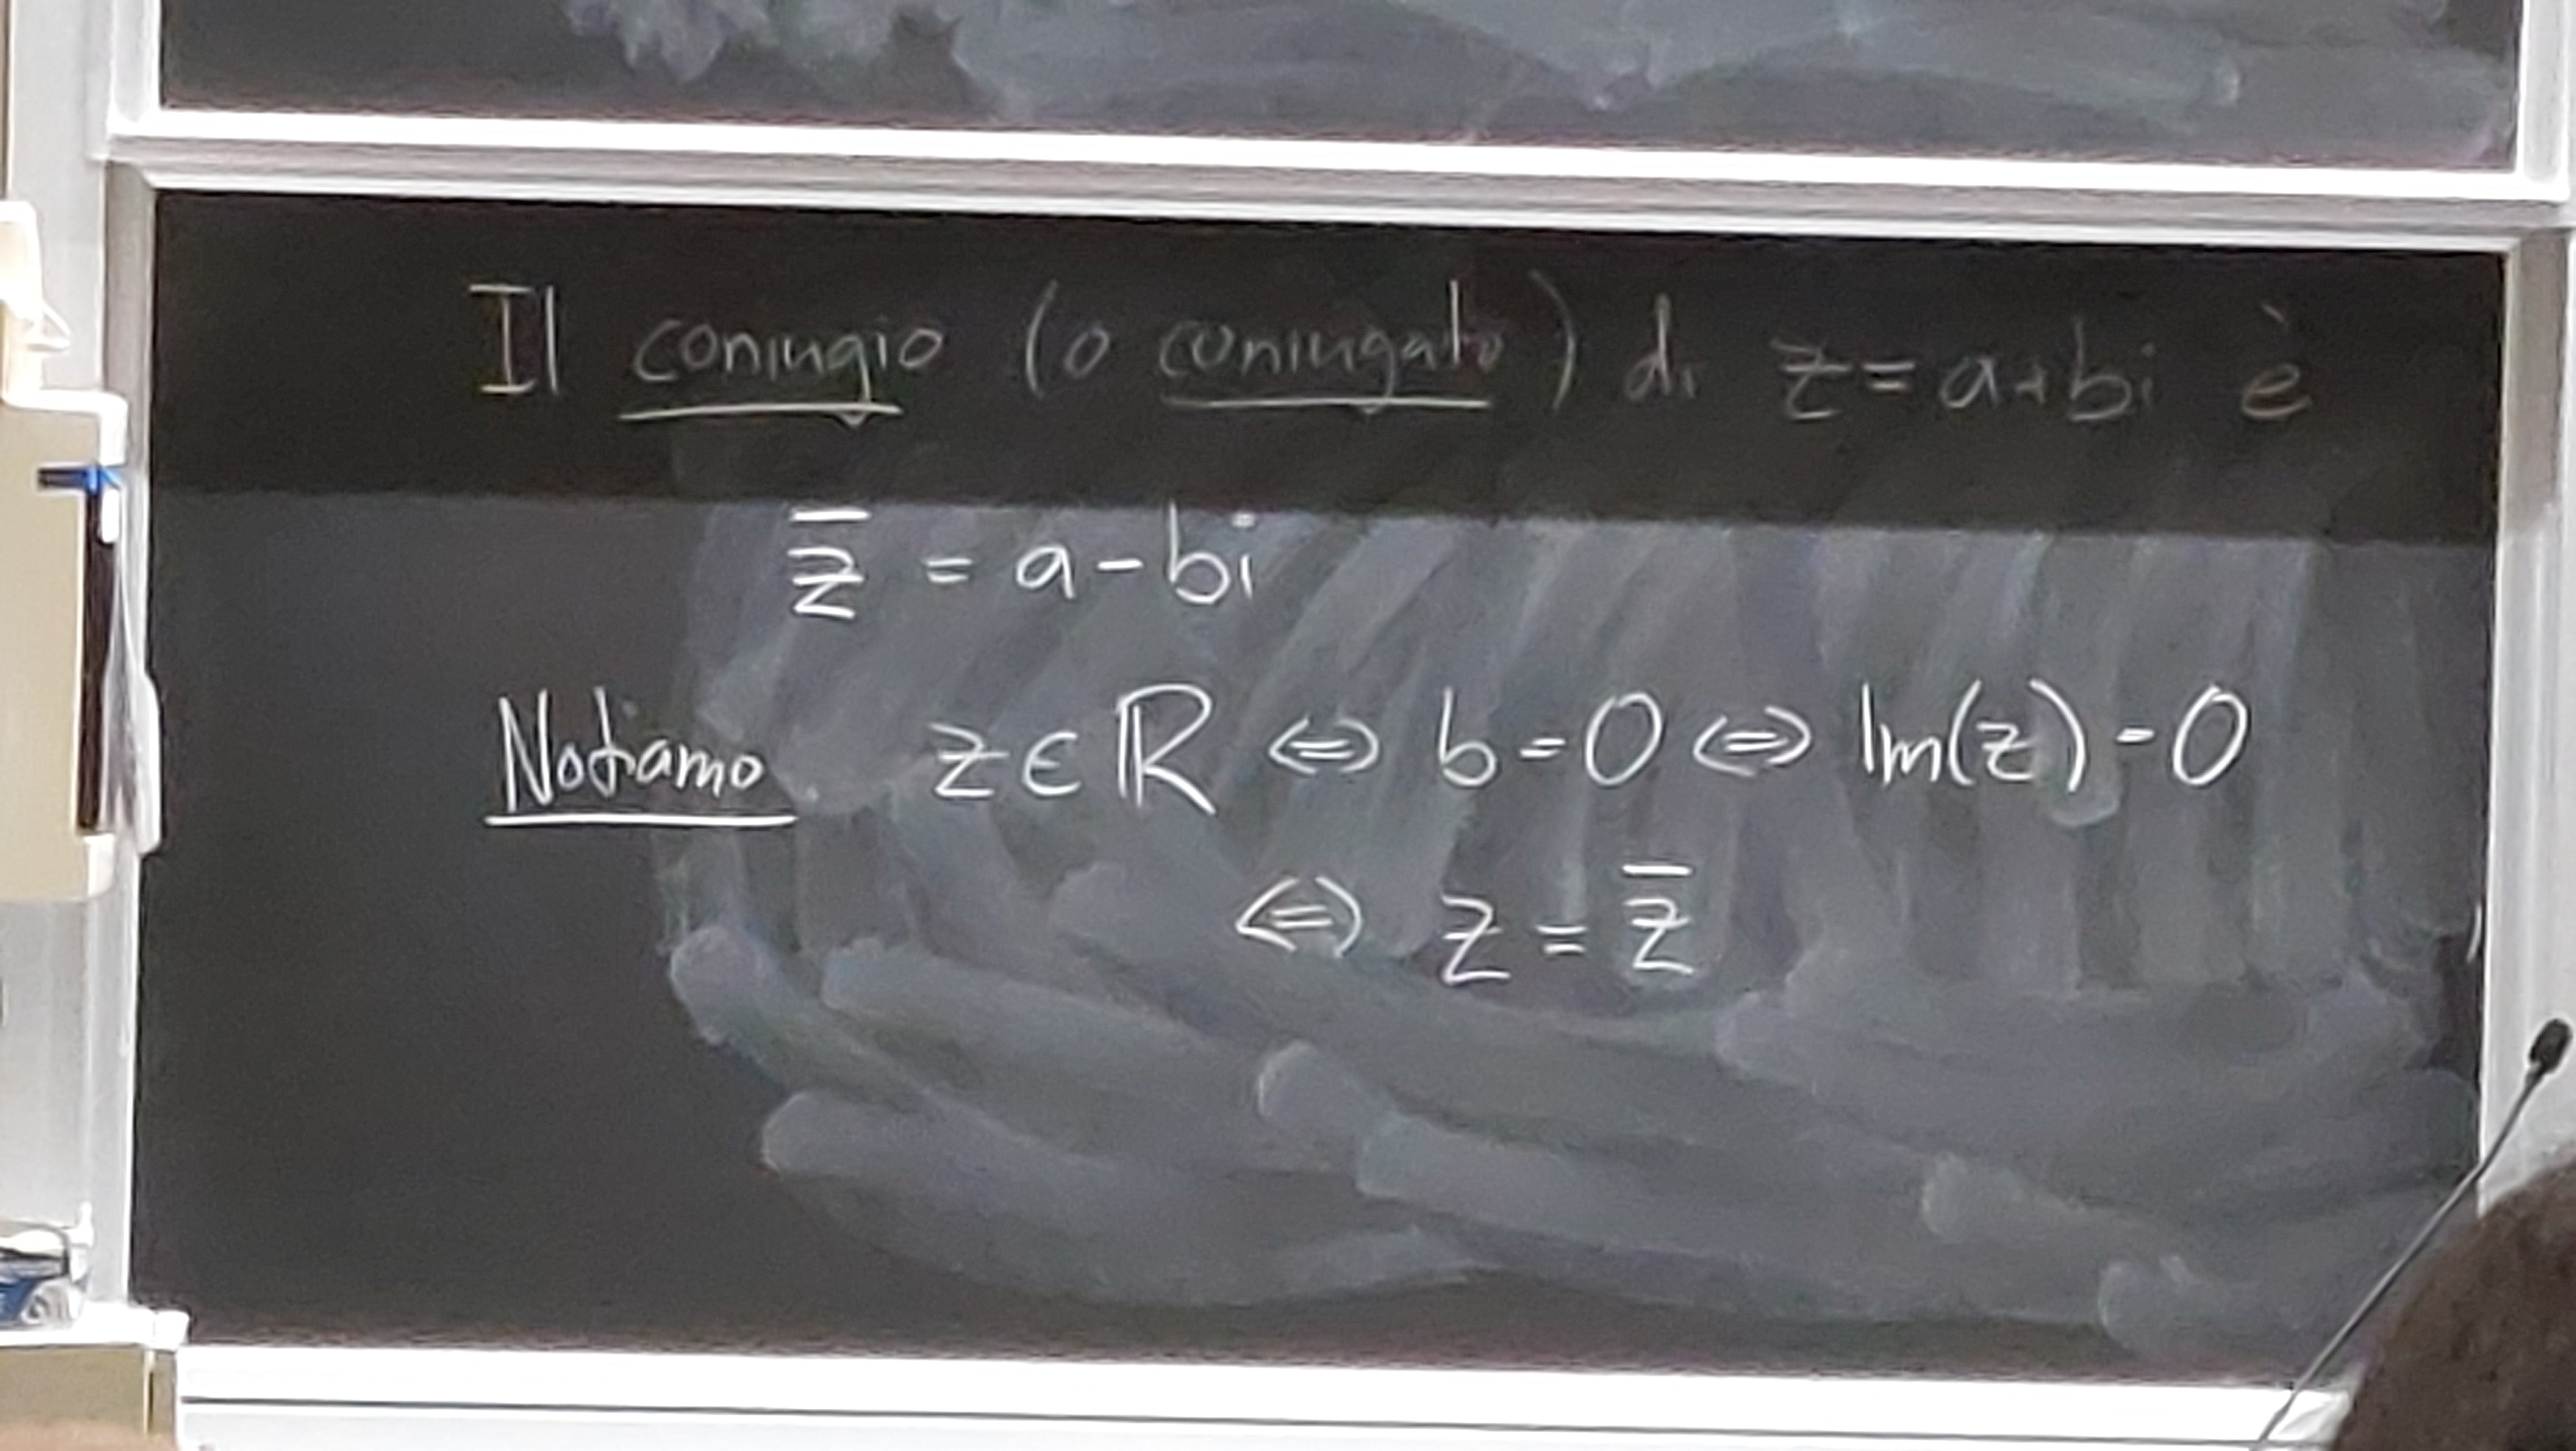 Il coniugio (o coniugato) di z = a+bi è
z̅ = a - bi
Notiamo z ∈ ℝ ⇔ b = 0 ⇔ Im(z) = 0
⇔ z = z̅